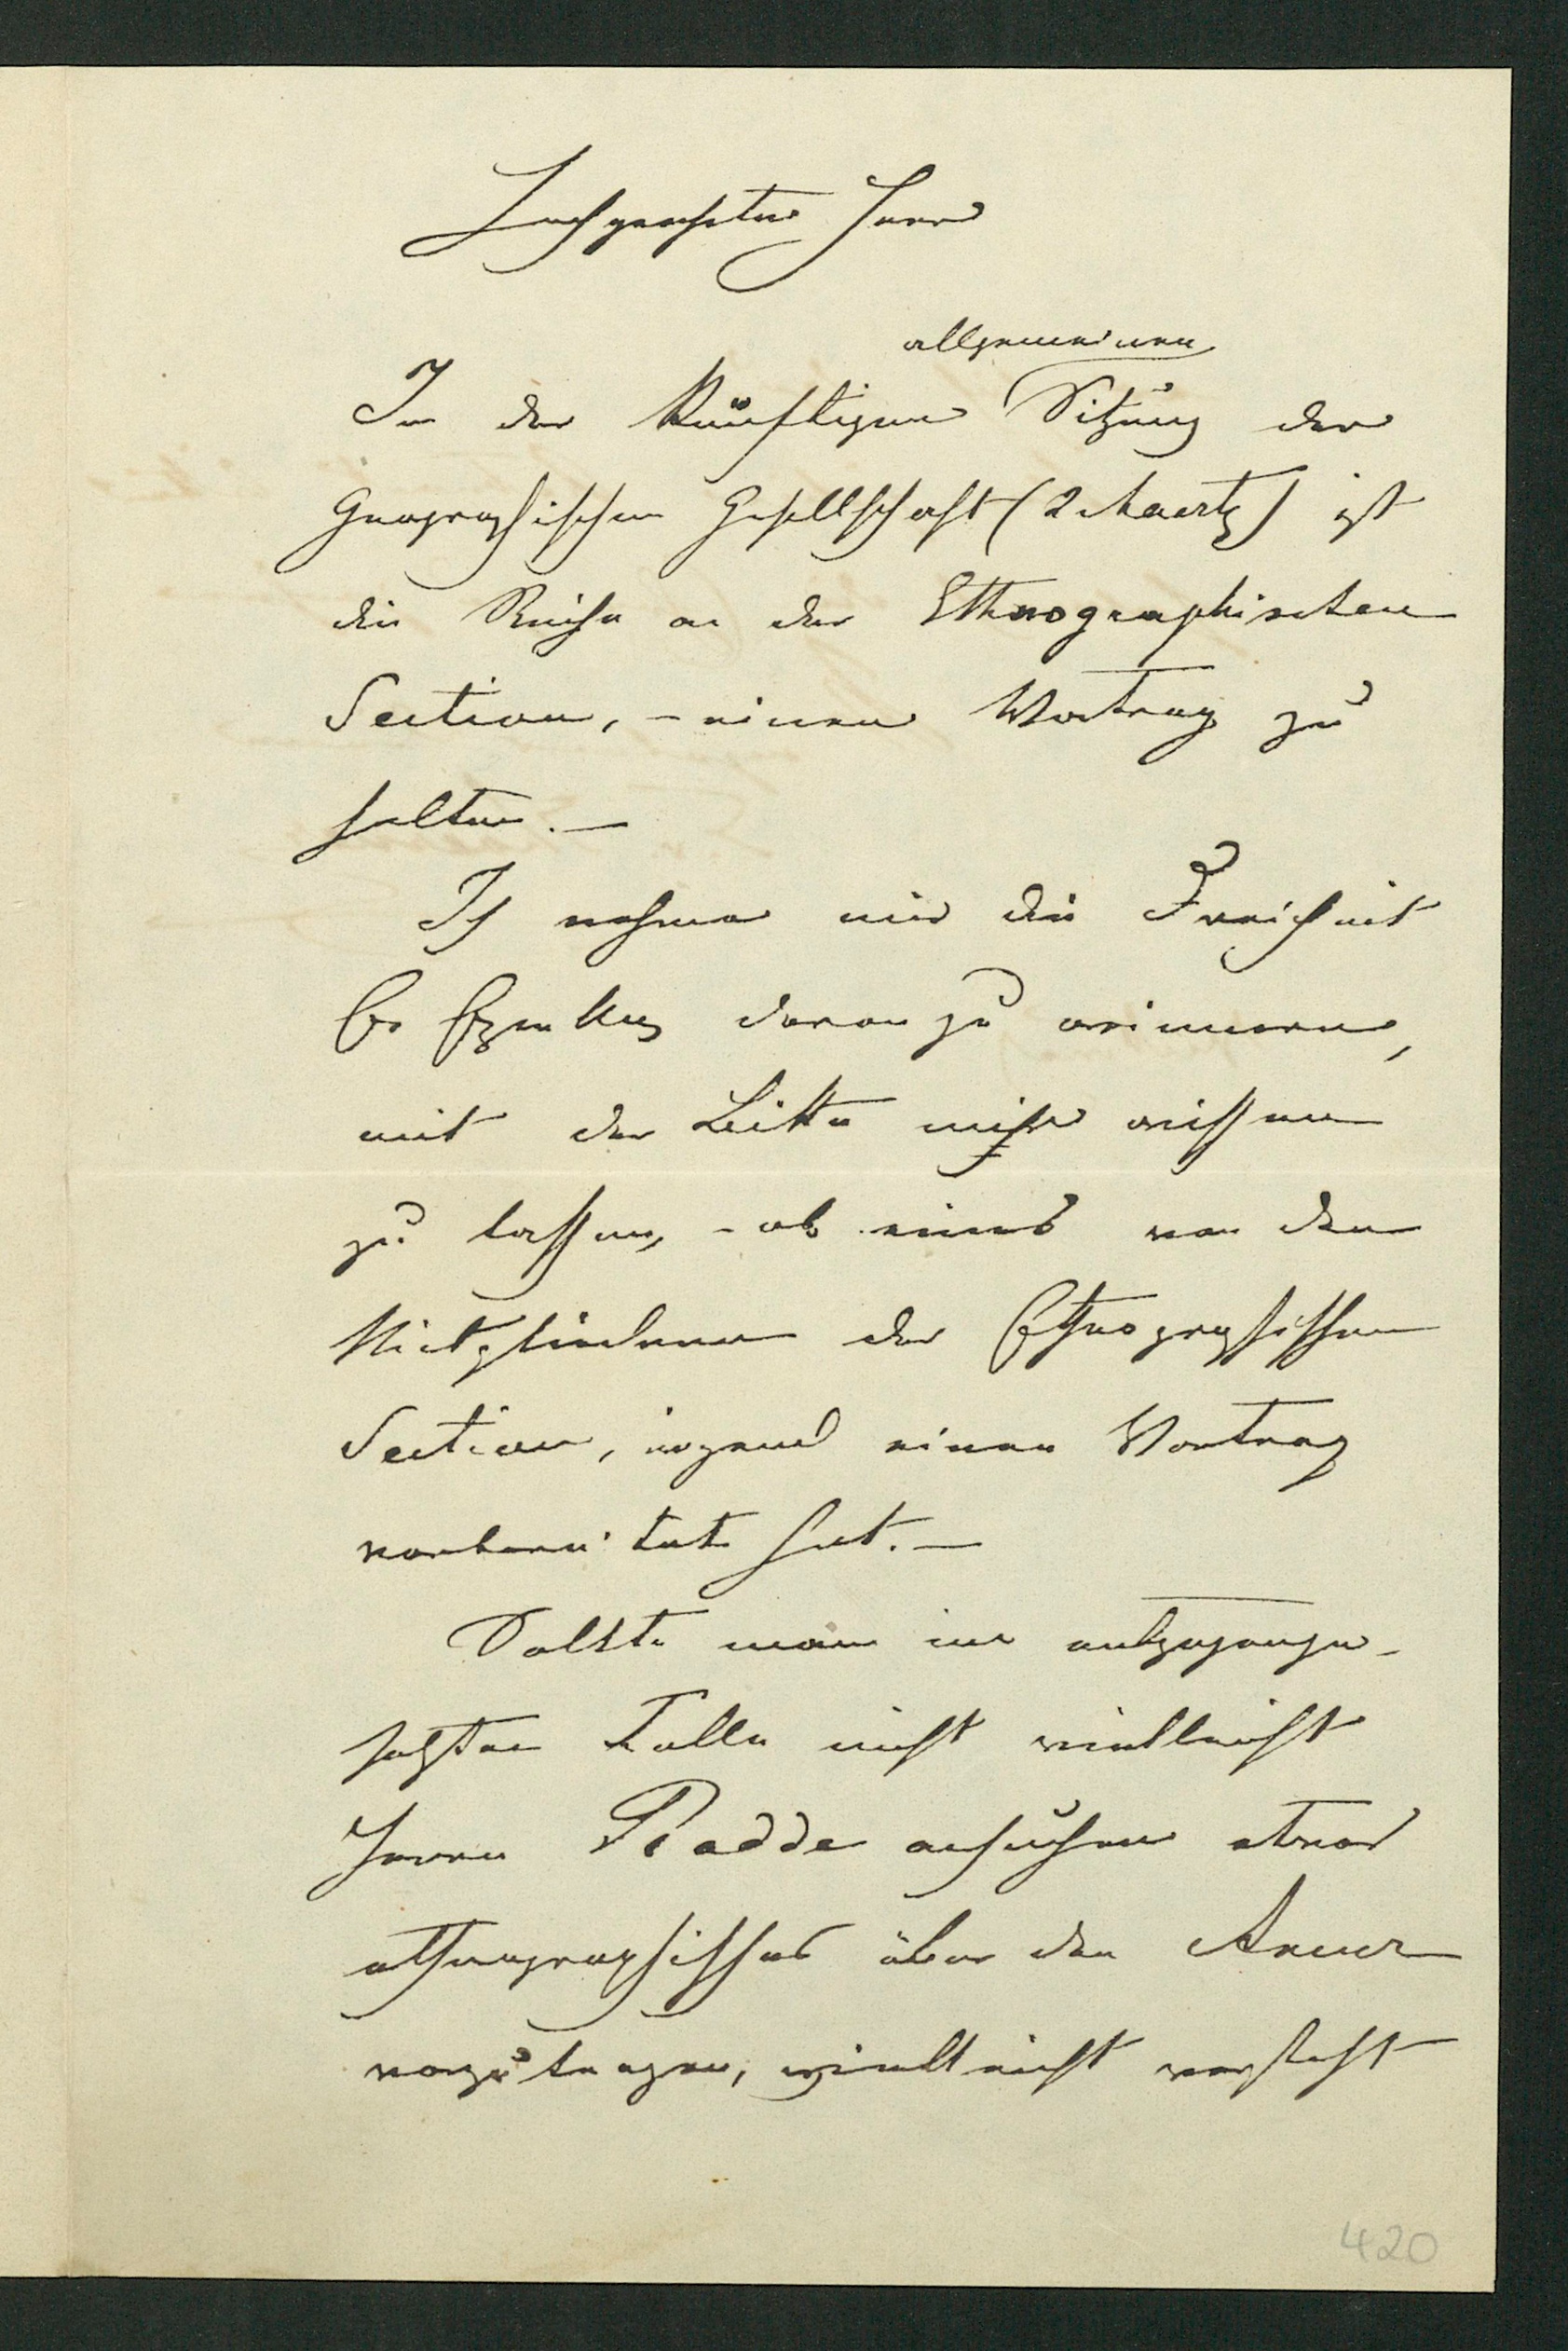 Hochgeachter Herr
allgemeinen
In der künftigen Sitzung der
Geographischen Gesellschaft (2 Maertz) ist
die Reihe an der Ethnographischen
Section, - einen Vortrag zu
halten. —
Ich nehme mir die Freiheit
Ew Exzell daran zu erinnern,
mit der Bitte mich wissen
zu lassen, - ob eines von den
Mitgliedern der Ethnographischen
Section, irgend einen Vortrag
vorbereitet hat. —
Sollte man im entgegenge-
setzten Falle nicht vielleicht
Herrn Radde ersuchen etwas
ethnographisches über den Amur
vorzutragen, vielleicht versteht
420